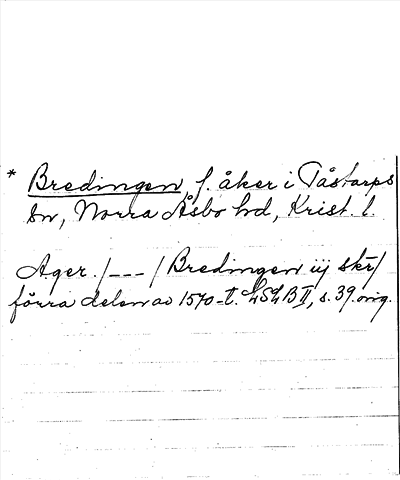 * Bredingen, f. åker i Tåstarps
sn, Norra Åsbo hd, Krist. l.
Ager. /---/ Bredingen iij skr/
förra delen av 1570-t. LSLB II, s. 39. orig.